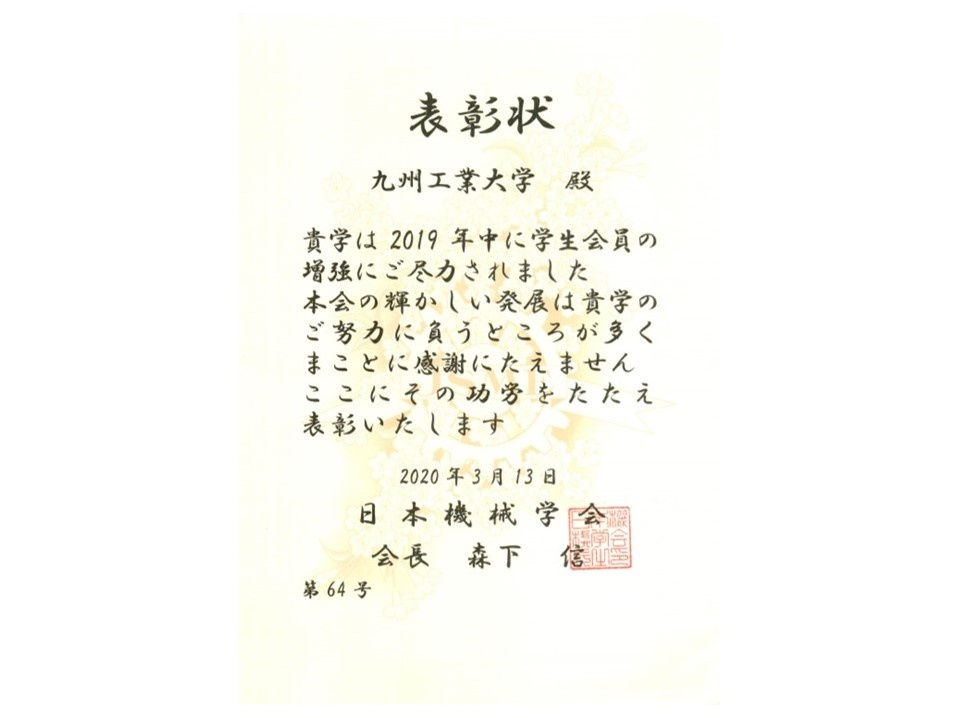 表彰状
九州工業大学 殿
貴学は 2019 年中に学生会員の
増強にご尽力されました
本会の輝かしい発展は貴学の
ご努力に負うところが多く
まことに感謝にたえません
ここにその功労をたたえ
表彰いたします
JSME
2020 年 3 月 13 日
日本機械学会
会長 森下 信
第 64 号